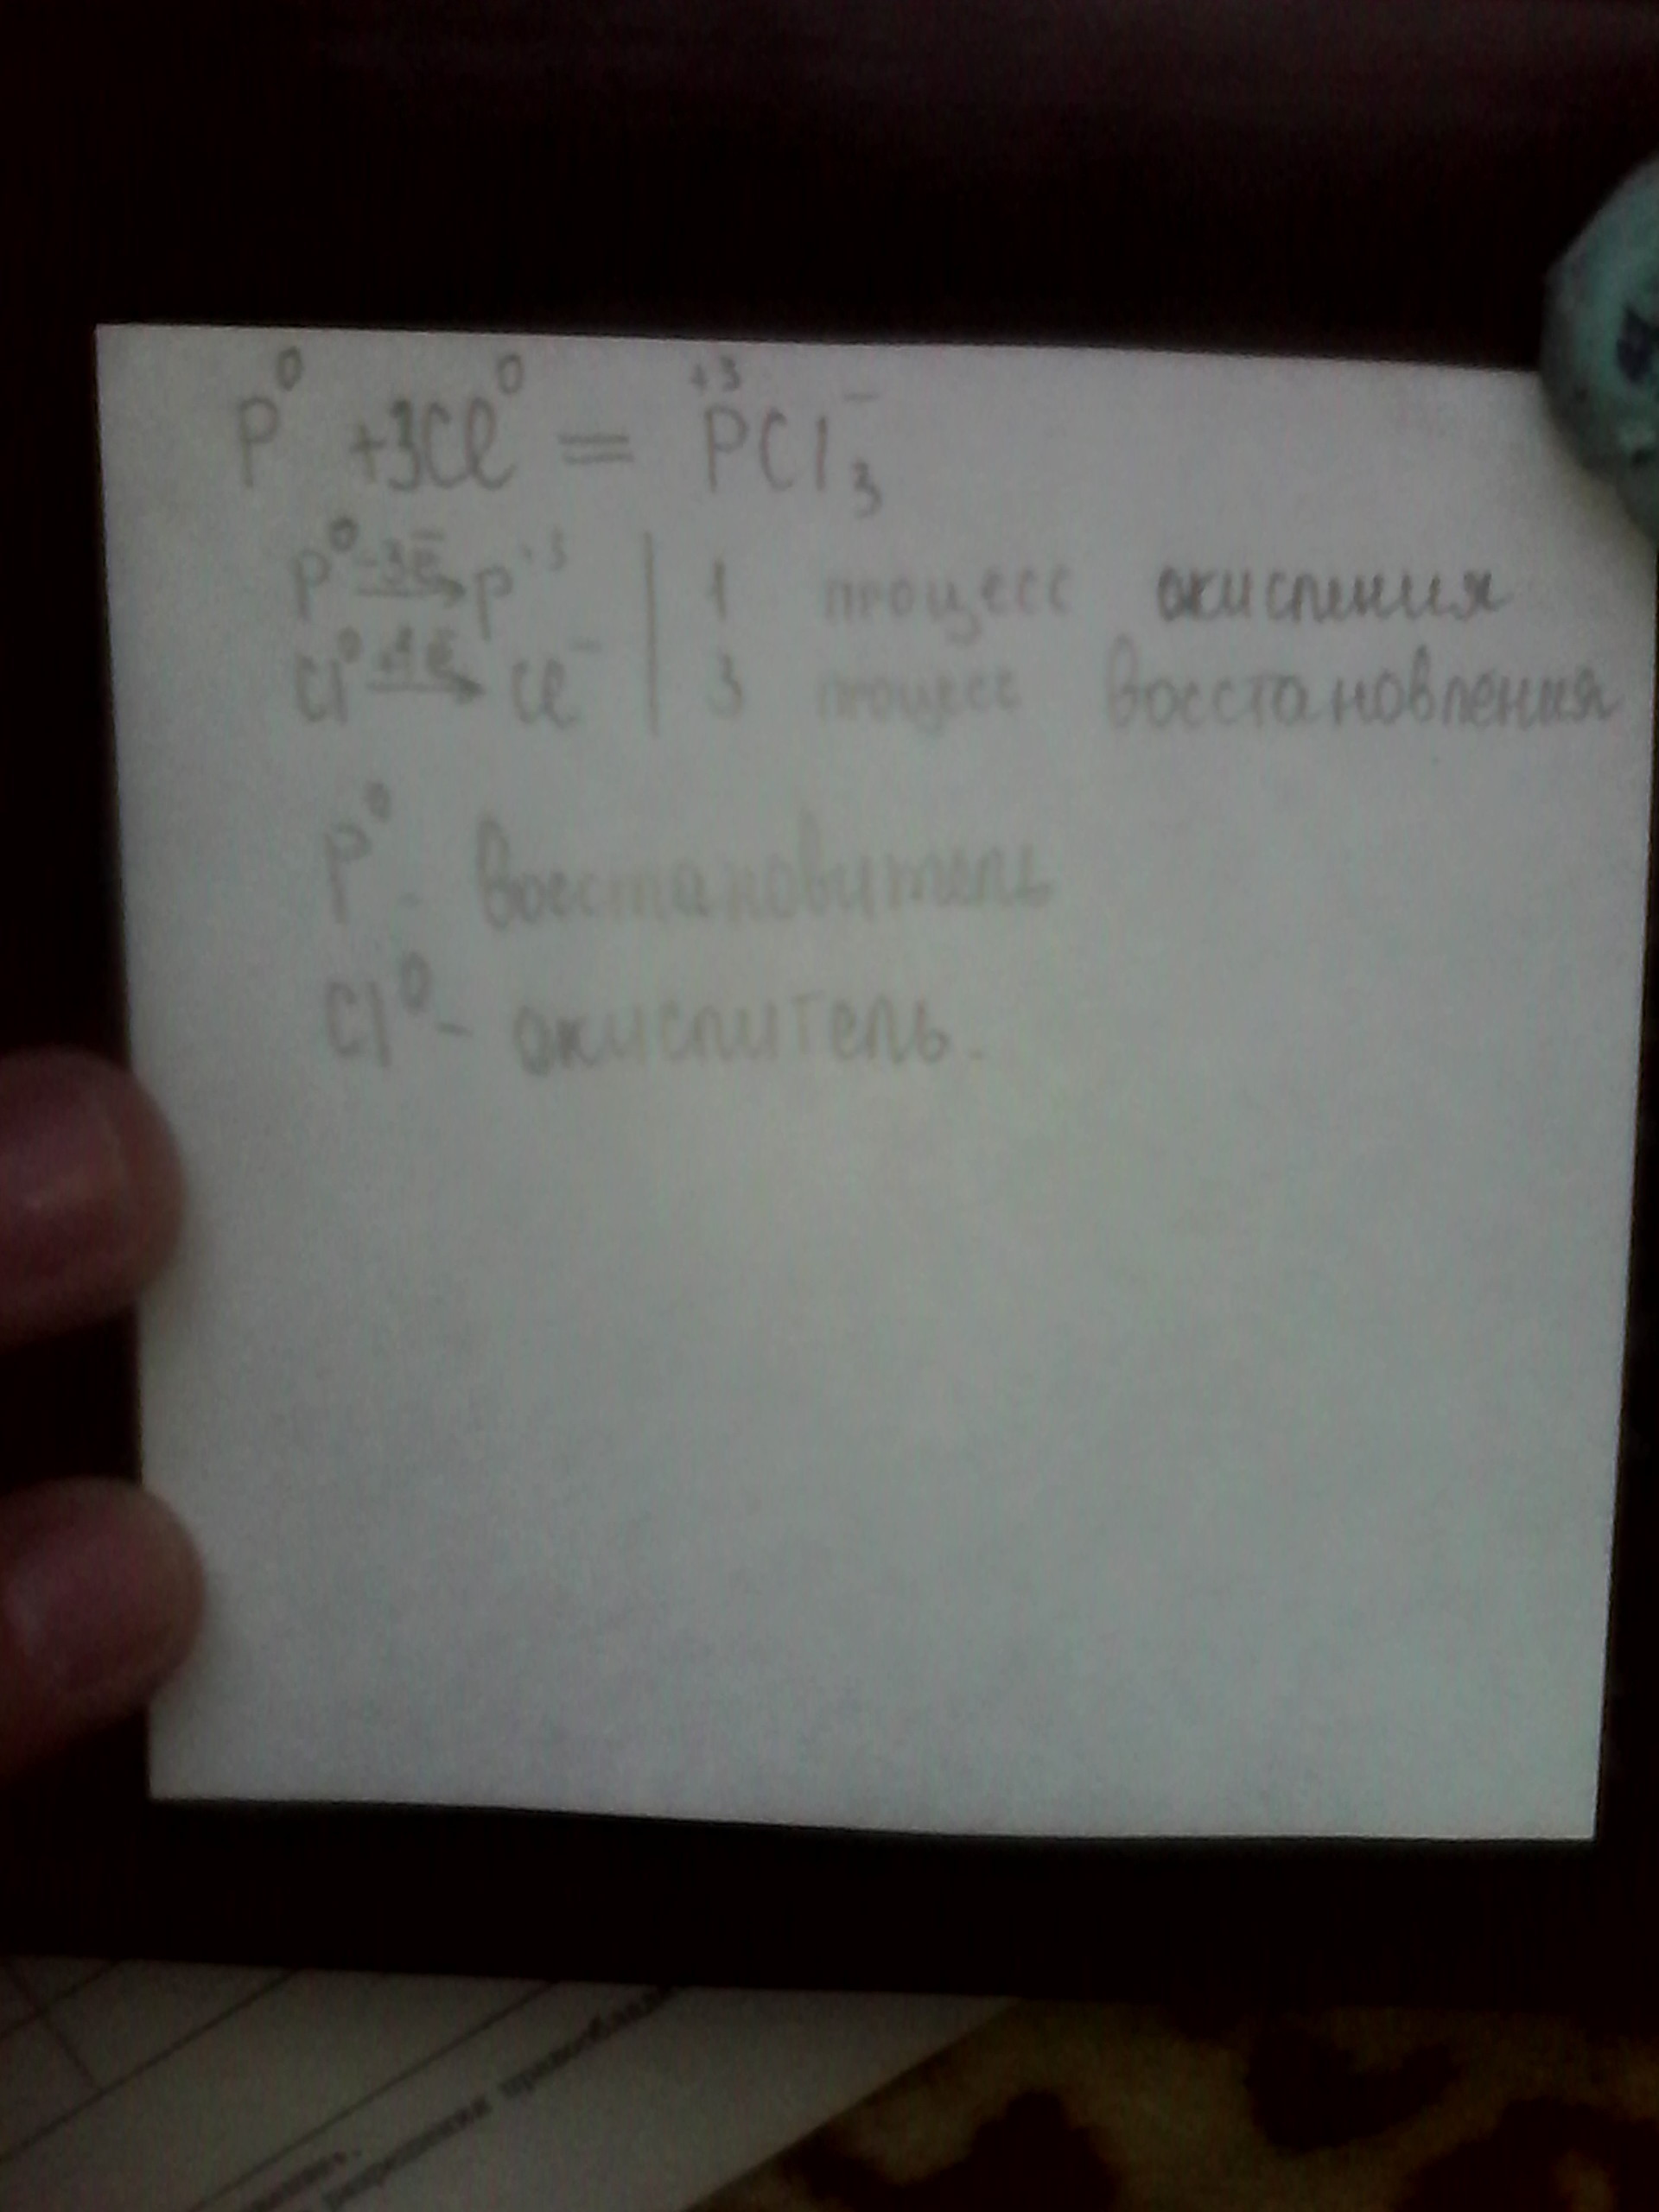 P⁰ +3Cl⁰ = ⁺³PCl₃⁻
P⁰ -3ē→ P⁺³ | 1 процесс окисления
Cl⁰ +1ē→ Cl⁻ | 3 процесс восстановления
P⁰ - восстановитель
Cl⁰ - окислитель.